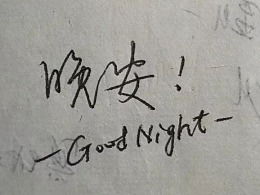 晚安!
- Good Night -